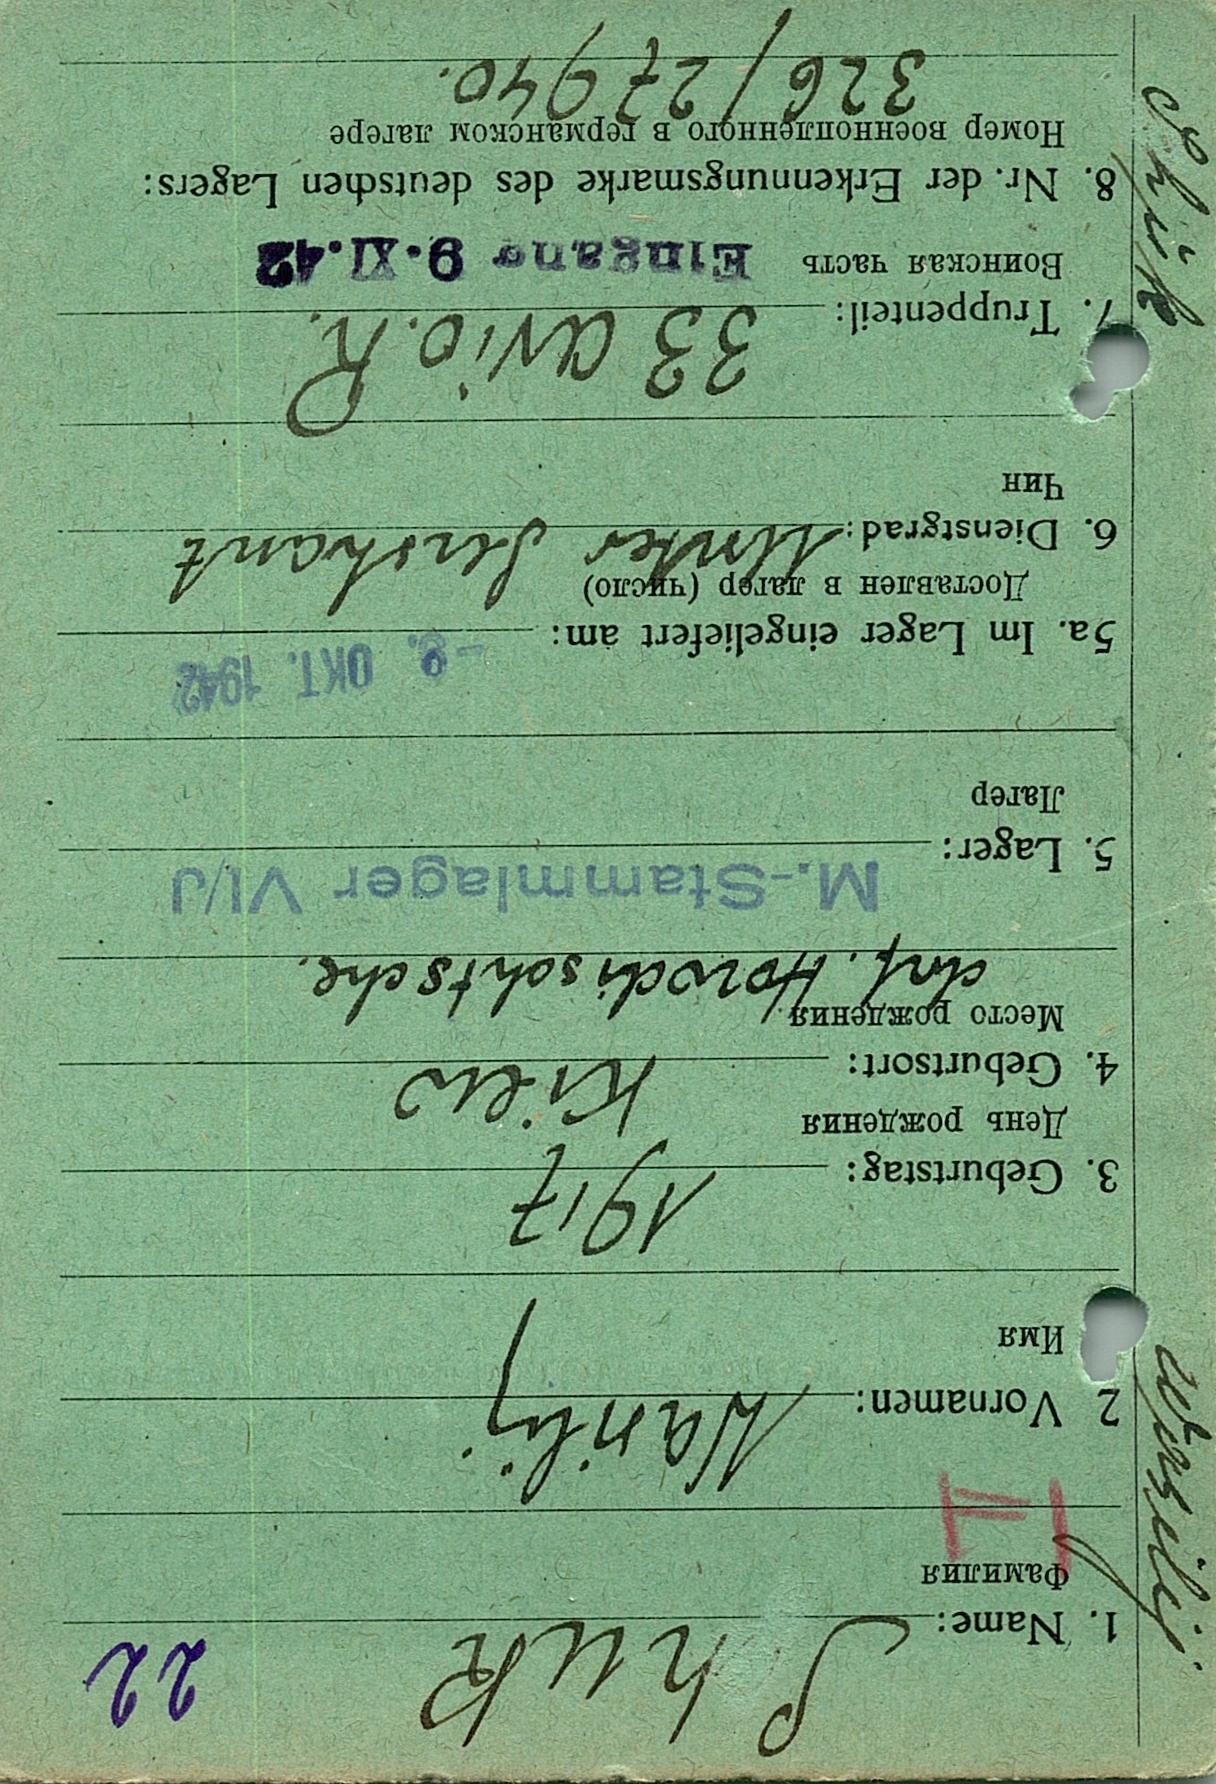 22
1. Name: Shuk
Фамилия
2 Vornamen: Wasilij
Имя
3. Geburtstag: 1917
День рождения
4. Geburtsort: Kiew
Место рождения
dorf. Horodischtsche.
5. Lager: M.-Stammlager VI/J
Лагер
5a. Im Lager eingeliefert am: -9. OKT. 1942
Доставлен в лагер (число)
6. Dienstgrad: Unter
Чин
7. Truppenteil: 33 avio. R.
Воинская часть Eingang 9. XI. 42
8. Nr. der Erkennungsmarke des deutschen Lagers:
Номер военнопленного в германском лагере
326/27940.
Wasilij Shuk